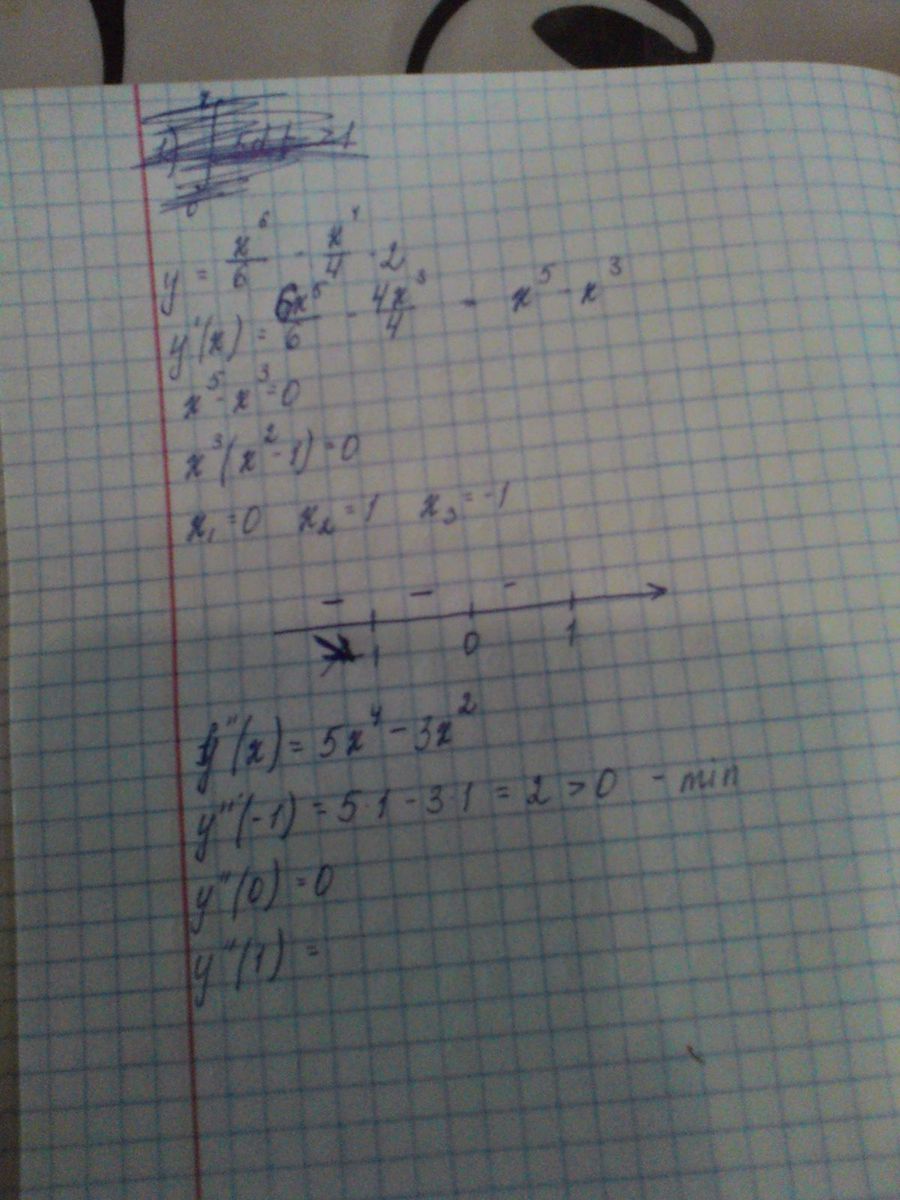 y = x⁶/6 - x⁴/4 - 2
y'(x) = 6x⁵/6 - 4x³/4 = x⁵ - x³
x⁵ - x³ = 0
x³(x² - 1) = 0
x₁ = 0 x₂ = 1 x₃ = -1
- - -
-1 0 1
y''(x) = 5x⁴ - 3x²
y''(-1) = 5·1 - 3·1 = 2 > 0 - min
y''(0) = 0
y''(1) =